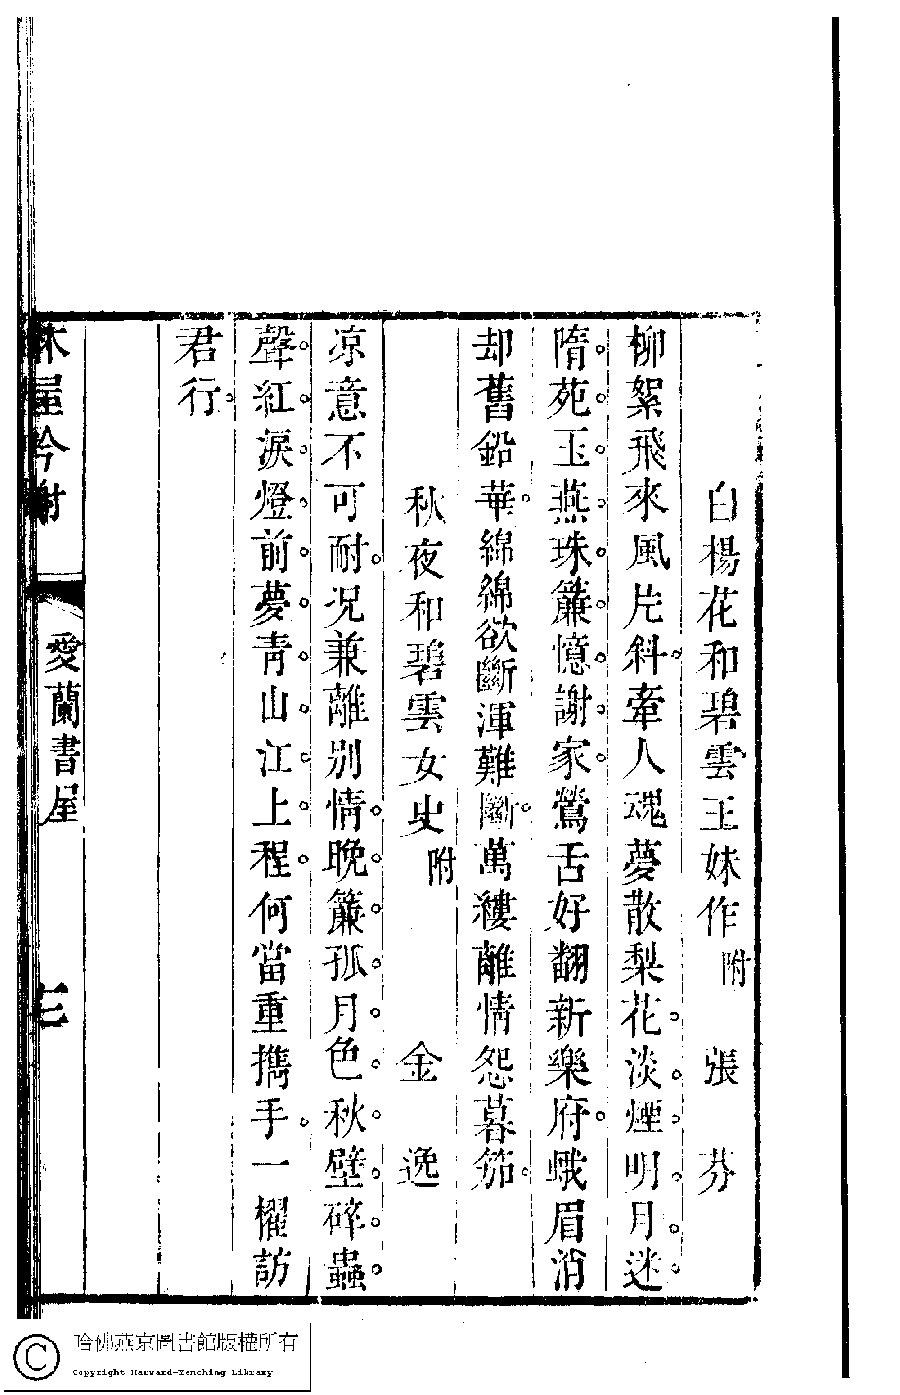 白楊花和碧雲王妹作附　張　芬
柳絮飛來風片斜牽人魂夢散梨花淡煙明月迷
隋苑玉燕珠簾憶謝家鶯舌好翻新樂府蛾眉消
却舊鉛華綿綿欲斷渾難斷萬縷離情怨暮笳
秋夜和碧雲女史附　金　逸
凉意不可耐況兼離别情晚簾孤月色秋壁碎蟲
聲紅淚燈前夢青山江上程何當重攜手一櫂訪
君行
林屋吟榭
愛蘭書屋
七
哈佛燕京圖書館版權所有
Copyright Harvard-Yenching Library